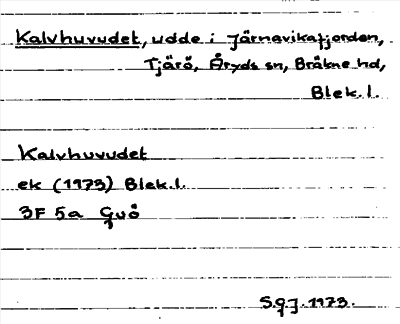 Kalvhuvudet, udde i Järnavikafjorden,
Tjärö, Åryds sn, Bräkne hd,
Blek. l.
Kalvhuvudet
ek (1973) Blek. l.
3F 5a Guö
S.g.J. 1973.